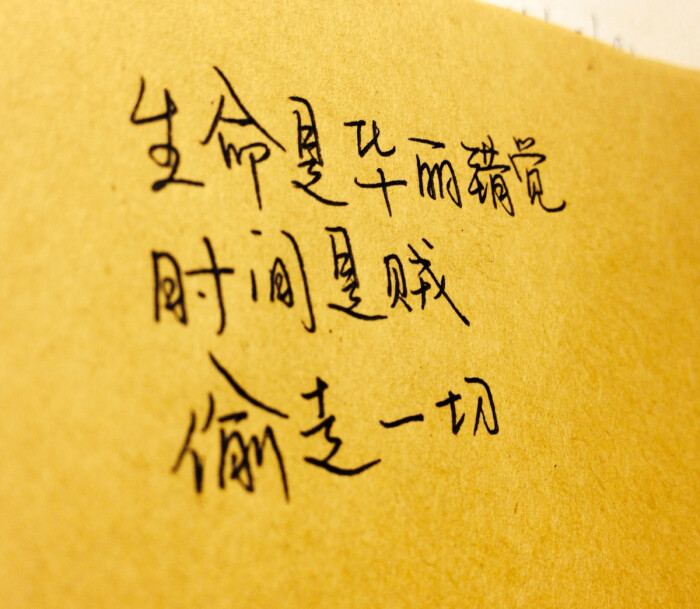 生命是华丽错觉
时间是贼
偷走一切